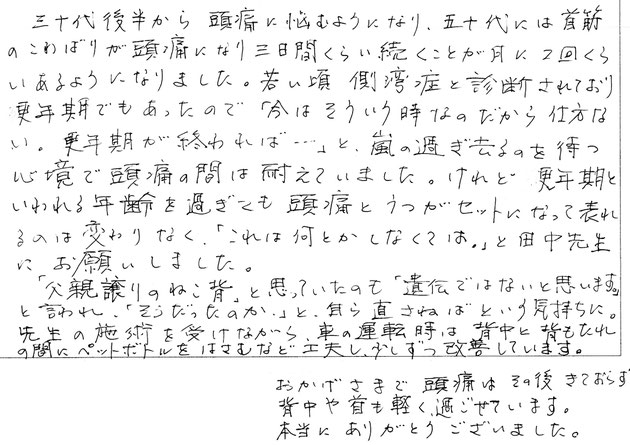 三十代後半から 頭痛に悩むようになり、五十代には首筋
のこわばりが頭痛になり三日間くらい続くことが月に2回くら
いあるようになりました。若い頃 側湾症と診断されており
更年期でもあったので「今はそういう時なのだから仕方な
い。更年期が終われば…」と、嵐の過ぎ去るのを待つ
心境で頭痛の間は耐えていました。けれど 更年期と
いわれる年齢を過ぎても 頭痛とうつがセットになって表れ
るのは変わりなく、「これは何とかしなくては。」と田中先生
に お願いしました。
「父親譲りのねこ背」と思っていたのも「遺伝ではないと思います。」
と言われ、「そうだったのか。」と、自ら直さねばという気持ちに。
先生の施術を受けながら、車の運転時は 背中と背もたれ
の間にペットボトルをはさむなど工夫し、少しずつ改善しています。
おかげさまで 頭痛は その後 きておらず
背中や首も軽く、過ごせています。
本当に ありがとうございました。